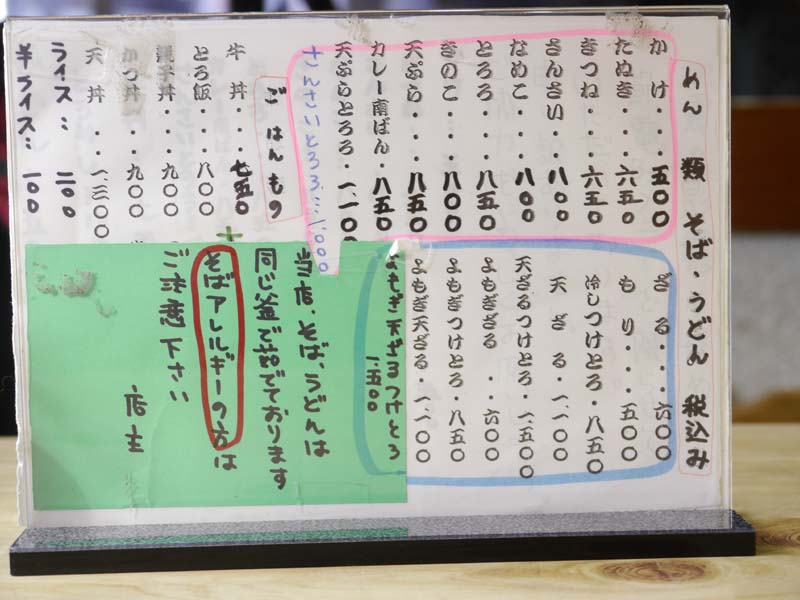 めん類 そば、うどん 税込み
かけ・・・五〇〇
たぬき・・・六五〇
きつね・・・六五〇
さんさい・・八〇〇
なめこ・・・八〇〇
とろろ・・・八五〇
きのこ・・・八〇〇
天ぷら・・・八五〇
カレー南ばん・八五〇
天ぷらとろろ・一、一〇〇
さんさいとろろ…1,000
ざる・・・・六〇〇
もり・・・・五〇〇
冷しつけとろ・八五〇
天ざる・一、一〇〇
天ざるつけとろ・一、五〇〇
よもぎざる・・六〇〇
よもぎつけとろ・八五〇
よもぎ天ざる・一、一〇〇
よもぎ天ざるつけとろ
一、五〇〇
ごはんもの
牛丼・・・七五〇
とろ飯・・・八〇〇
親子丼・・・九〇〇
かつ丼・・・九〇〇
天丼・・・一、三〇〇
ライス… 二〇〇
半ライス… 一〇〇
当店、そば、うどんは
同じ釜で茹でております
そばアレルギーの方は
ご注意下さい
店主